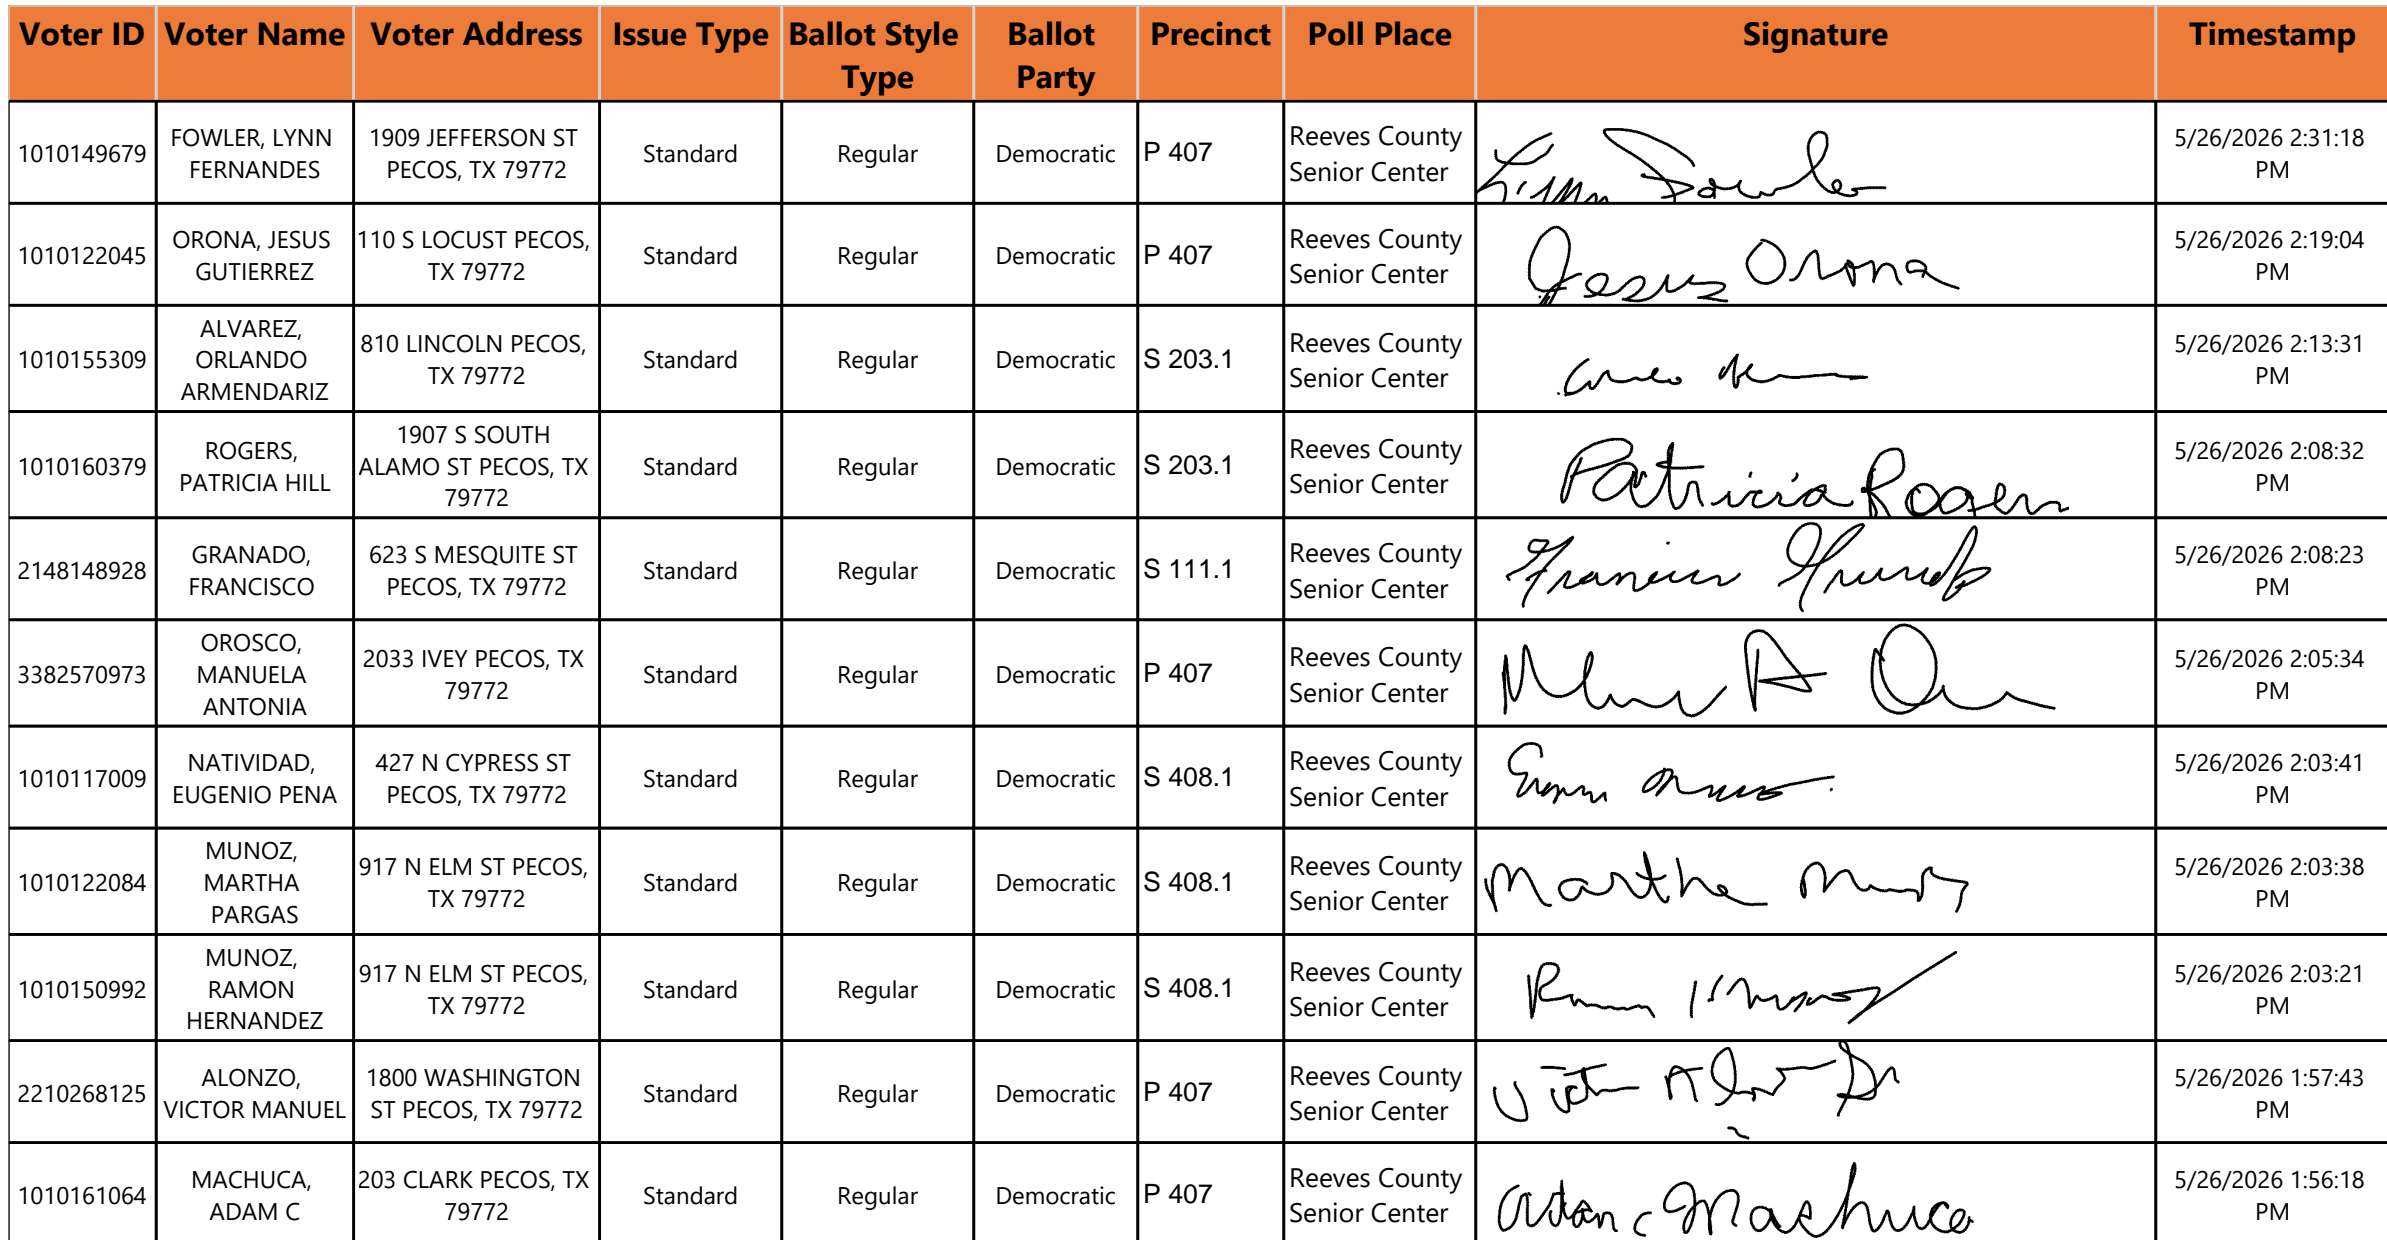 Voter ID Voter Name Voter Address Issue Type Ballot Style Type Ballot Party Precinct Poll Place Signature Timestamp
1010149679 FOWLER, LYNN FERNANDES 1909 JEFFERSON ST PECOS, TX 79772 Standard Regular Democratic P 407 Reeves County Senior Center Lynn Fowler 5/26/2026 2:31:18 PM
1010122045 ORONA, JESUS GUTIERREZ 110 S LOCUST PECOS, TX 79772 Standard Regular Democratic P 407 Reeves County Senior Center Jesus Orona 5/26/2026 2:19:04 PM
1010155309 ALVAREZ, ORLANDO ARMENDARIZ 810 LINCOLN PECOS, TX 79772 Standard Regular Democratic S 203.1 Reeves County Senior Center 5/26/2026 2:13:31 PM
1010160379 ROGERS, PATRICIA HILL 1907 S SOUTH ALAMO ST PECOS, TX 79772 Standard Regular Democratic S 203.1 Reeves County Senior Center Patricia Rogers 5/26/2026 2:08:32 PM
2148148928 GRANADO, FRANCISCO 623 S MESQUITE ST PECOS, TX 79772 Standard Regular Democratic S 111.1 Reeves County Senior Center 5/26/2026 2:08:23 PM
3382570973 OROSCO, MANUELA ANTONIA 2033 IVEY PECOS, TX 79772 Standard Regular Democratic P 407 Reeves County Senior Center 5/26/2026 2:05:34 PM
1010117009 NATIVIDAD, EUGENIO PENA 427 N CYPRESS ST PECOS, TX 79772 Standard Regular Democratic S 408.1 Reeves County Senior Center 5/26/2026 2:03:41 PM
1010122084 MUNOZ, MARTHA PARGAS 917 N ELM ST PECOS, TX 79772 Standard Regular Democratic S 408.1 Reeves County Senior Center Martha Munoz 5/26/2026 2:03:38 PM
1010150992 MUNOZ, RAMON HERNANDEZ 917 N ELM ST PECOS, TX 79772 Standard Regular Democratic S 408.1 Reeves County Senior Center 5/26/2026 2:03:21 PM
2210268125 ALONZO, VICTOR MANUEL 1800 WASHINGTON ST PECOS, TX 79772 Standard Regular Democratic P 407 Reeves County Senior Center 5/26/2026 1:57:43 PM
1010161064 MACHUCA, ADAM C 203 CLARK PECOS, TX 79772 Standard Regular Democratic P 407 Reeves County Senior Center Adam C Machuca 5/26/2026 1:56:18 PM